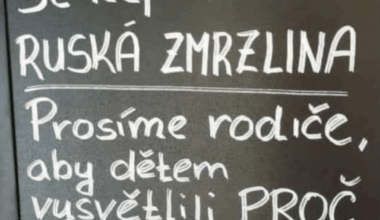 RUSKÁ ZMRZLINA
Prosíme rodiče,
aby dětem
vysvětlili PROČ